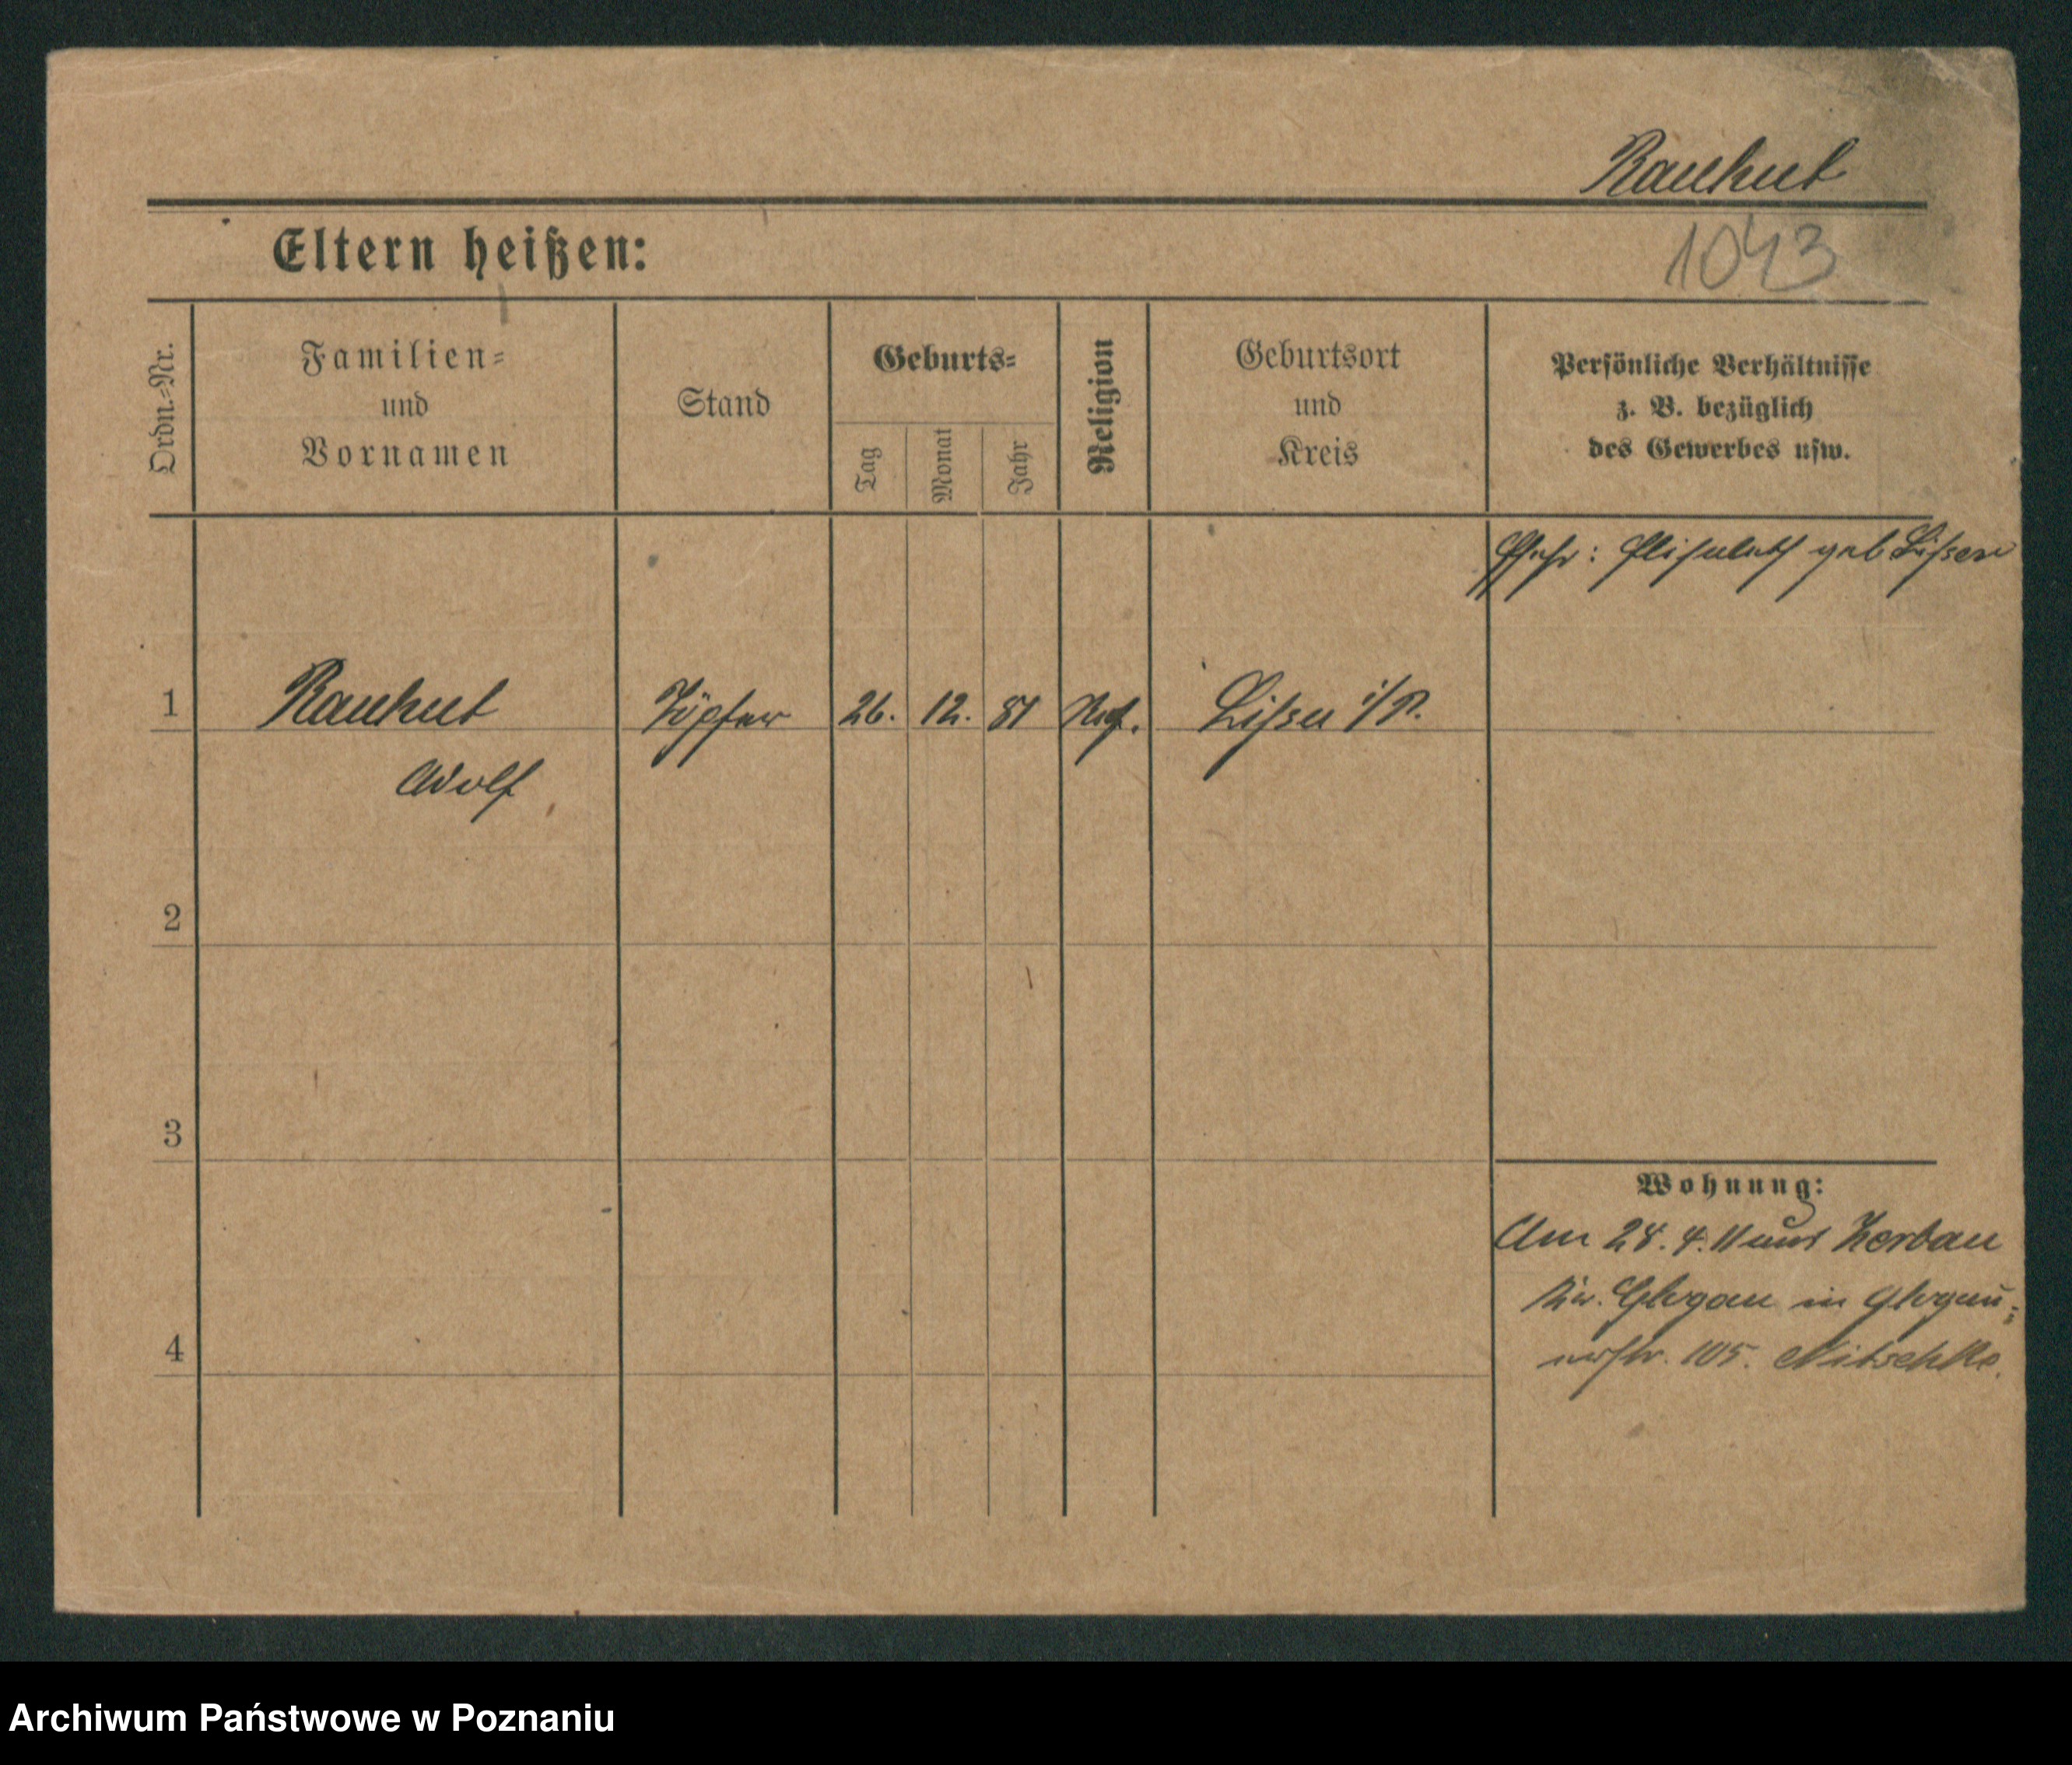 Rauhut
Eltern heißen:
1043
Ordn.=Nr.
Familien=
und
Vornamen
Stand
Geburts=
Tag
Monat
Jahr
Religion
Geburtsort
und
Kreis
Persönliche Verhältnisse
z. B. bezüglich
des Gewerbes usw.
Ehefr: Elisabeth geb
1
Rauhut
Töpfer
26.
12.
81
Ref.
Lissa i/P.
Adolf
2
3
Wohnung:
Am 28.4.11 aus Zerbau
Kr. Glogau in Glogau=
erstr. 105. Nitschke.
4
Archiwum Państwowe w Poznaniu